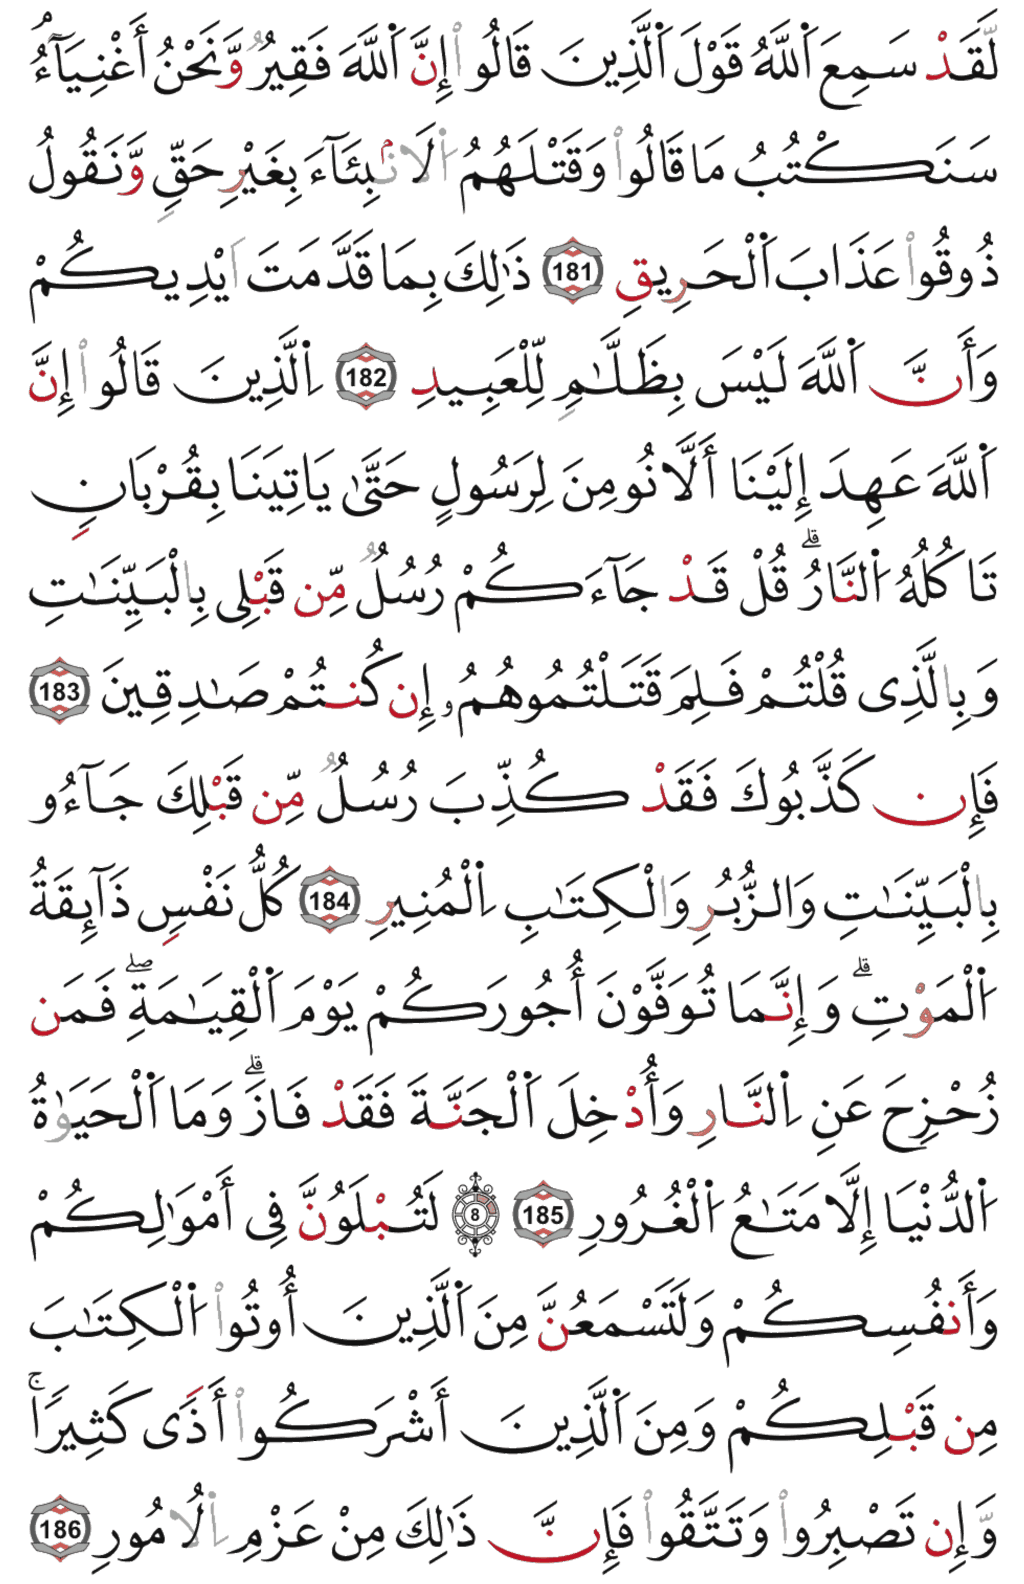 لَّقَدْ سَمِعَ اَ۬للَّهُ قَوْلَ اَ۬لَّذِينَ قَالُوا۟ إِنَّ اَ۬للَّهَ فَقِيرٌ وَّنَحْنُ أَغْنِيَآءُ
سَنَكْتُبُ مَا قَالُوا۟ وَقَتْلَهُمُ اُ۬لَانۢبِئَآءَ بِغَيْرِ حَقٍّ وَّنَقُولُ
ذُوقُوا۟ عَذَابَ اَ۬لْحَرِيقِ 181 ذَٰلِكَ بِمَا قَدَّمَتَ اَيْدِيكُمْ
وَأَنَّ اَ۬للَّهَ لَيْسَ بِظَلَّٰمٍ لِّلْعَبِيدِ 182 اِ۬لَّذِينَ قَالُوا۟ إِنَّ
اَ۬للَّهَ عَهِدَ إِلَيْنَا أَلَّا نُومِنَ لِرَسُولٍ حَتَّىٰ يَاتِيَنَا بِقُرْبَانٍ
تَاكُلُهُ اُ۬لنَّارُ ۗ قُلْ قَدْ جَآءَكُمْ رُسُلٌ مِّن قَبْلِى بِالْبَيِّنَٰتِ
وَبِالَّذِى قُلْتُمْ فَلِمَ قَتَلْتُمُوهُمُۥ إِن كُنتُمْ صَٰدِقِينَ 183
فَإِن كَذَّبُوكَ فَقَدْ كُذِّبَ رُسُلٌ مِّن قَبْلِكَ جَآءُو
بِالْبَيِّنَٰتِ وَالزُّبُرِ وَالْكِتَٰبِ اِ۬لْمُنِيرِ 184 كُلُّ نَفْسٍ ذَآئِقَةُ
اُ۬لْمَوْتِ ۗ وَإِنَّمَا تُوَفَّوْنَ أُجُورَكُمْ يَوْمَ اَ۬لْقِيَٰمَةِ ۖ فَمَن
زُحْزِحَ عَنِ اِ۬لنَّارِ وَأُدْخِلَ اَ۬لْجَنَّةَ فَقَدْ فَازَ ۗ وَمَا اَ۬لْحَيَوٰةُ
اُ۬لدُّنْيَا إِلَّا مَتَٰعُ اُ۬لْغُرُورِ 185 8 لَتُبْلَوُنَّ فِى أَمْوَٰلِكُمْ
وَأَنفُسِكُمْ وَلَتَسْمَعُنَّ مِنَ اَ۬لَّذِينَ أُوتُوا۟ اُ۬لْكِتَٰبَ
مِن قَبْلِكُمْ وَمِنَ اَ۬لَّذِينَ أَشْرَكُوا۟ أَذًى كَثِيرًا ۚ
وَإِن تَصْبِرُوا۟ وَتَتَّقُوا۟ فَإِنَّ ذَٰلِكَ مِنْ عَزْمِ اِ۬لُامُورِ 186